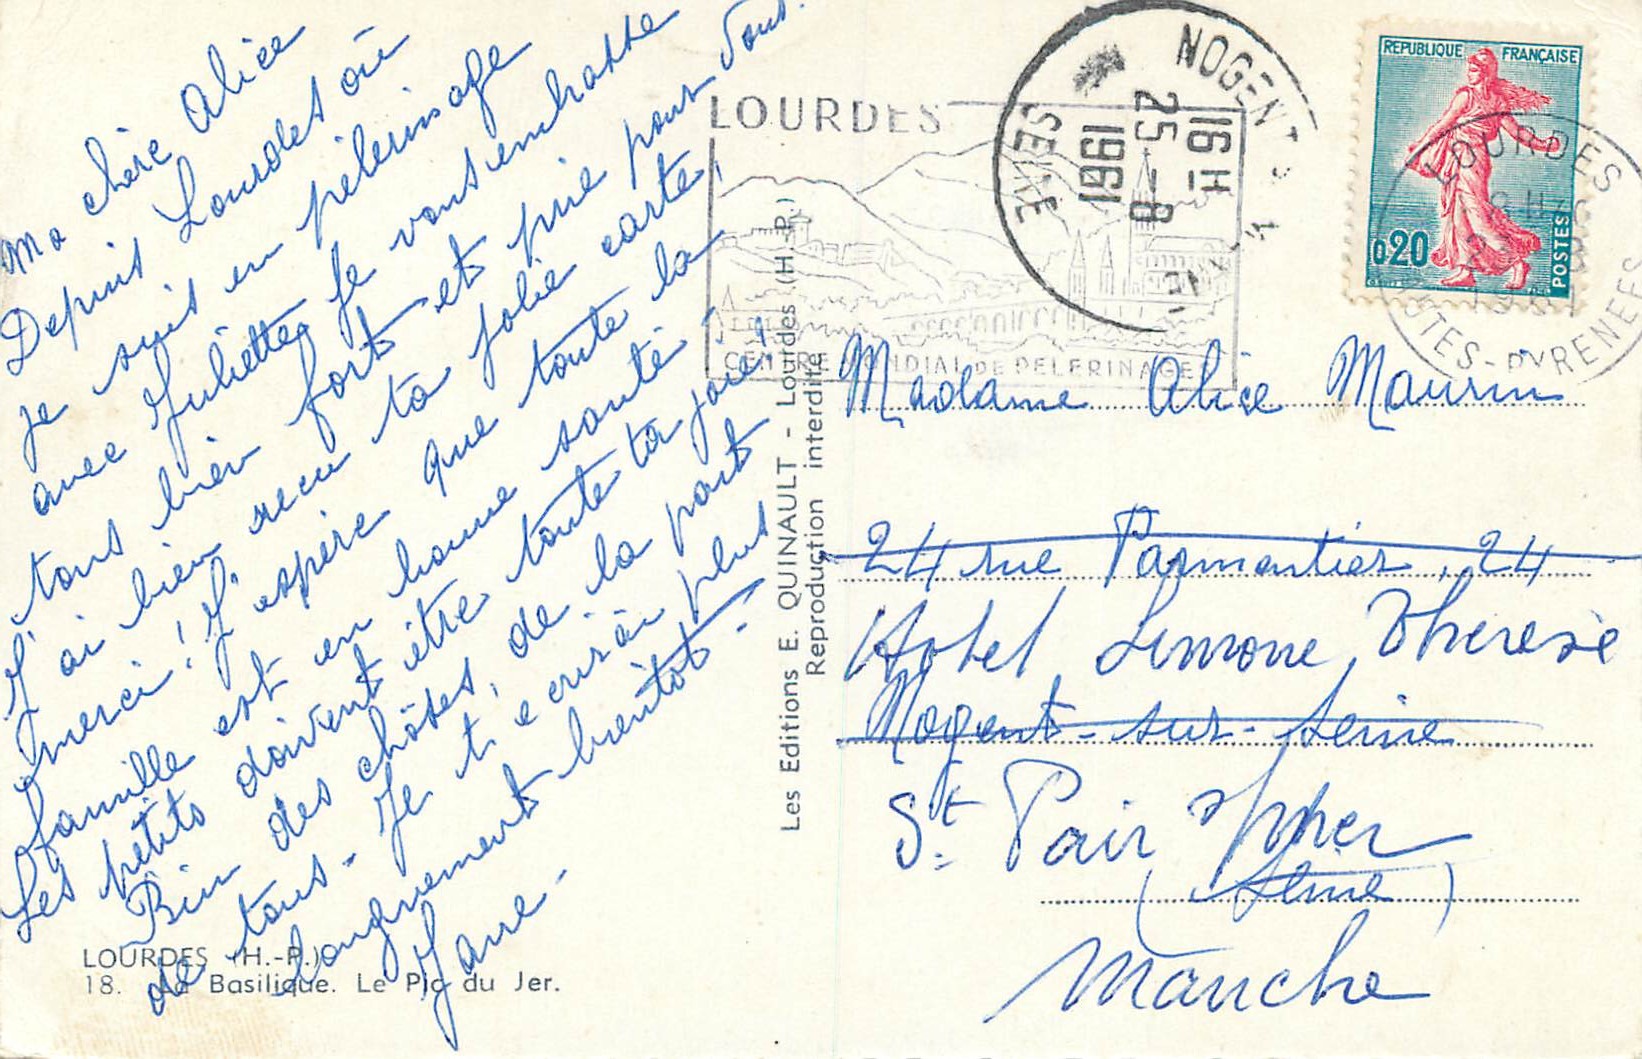 Ma chère Alice
Depuis Lourdes où
je suis en pèlerinage
avec Juliette, je vous embrasse
tous bien forts et prie pour vous.
J'ai bien reçu ta jolie carte,
merci! J'espère que toute la
famille est en bonne santé.
Les petits doivent être toute ta joie!
Bien des chôses, de la part
de tous. Je t'ecrirai plus
longuement bientôt.
Jane.
LOURDES (H.-P.)
18. La Basilique. Le Pic du Jer.
Les Editions E. QUINAULT - Lourdes (H.-P.)
Reproduction interdite
LOURDES
CENTRE MONDIAL DE PELERINAGES
NOGENT S
SEINE
16 H
25 - 8
1961
REPUBLIQUE FRANÇAISE
0,20
POSTES
LOURDES
HTES-PYRENEES
Madame Alice Maurin
24 rue Parmentier, 24
Hotel Simone, Therese
Nogent-sur-Seine
St Pair s/mer
(Seine)
Manche